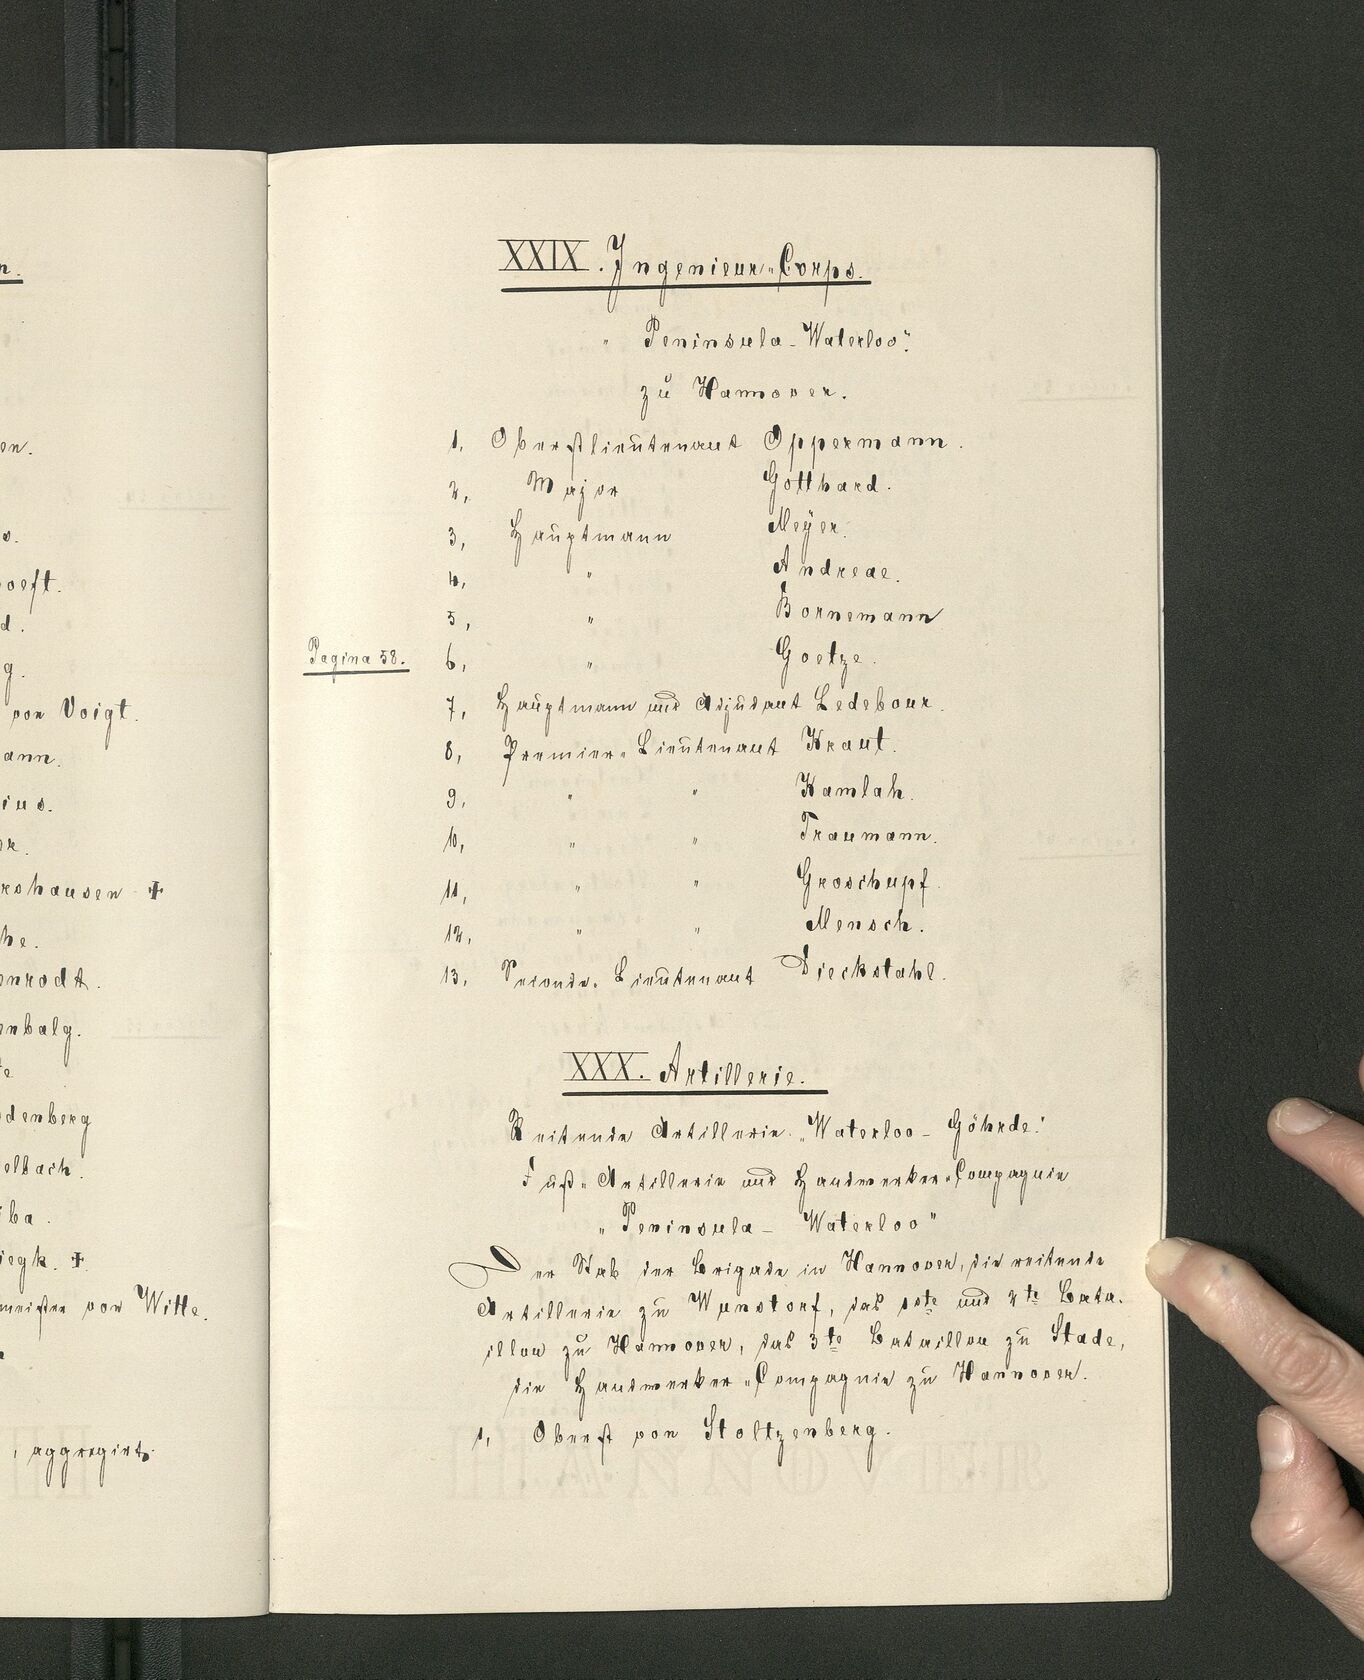 n.
en.
s.
oeft.
d.
g.
von Voigt.
ann.
ius.
er.
rshausen ✝
he.
enrodt.
enbalg.
te
denberg
elbach.
iba.
iegk. ✝.
meister von Witte.
n
, aggregirt.
XXIX. Ingenieur-Corps.
" Peninsula - Waterloo".
zu Hannover.
1, Oberstlieutenant Oppermann.
2, Major Gotthard.
3, Hauptmann Meÿer.
4, " Andreae.
5, " Bornemann
Pagina 58. 6, " Goetze.
7, Hauptmann und Adjutant Ledebour.
8, Premier-Lieutenant Kraut.
9, " " Kamlah.
10, " " Traumann.
11, " " Groschupf.
12, " " Mensch.
13, Seconde-Lieutenant Dieckstahl.
XXX. Artillerie.
Reitende Artillerie. „Waterloo - Göhrde."
Fuß-Artillerie und Handwerker-Compagnie
„Peninsula - Waterloo"
Der Stab der Brigade in Hannover, die reitende
Artillerie zu Wunstorf, das 1ste und 2te Bata-
illon zu Hannover, das 3te Bataillon zu Stade,
die Handwerker-Compagnie zu Hannover.
1, Oberst von Stoltzenberg.